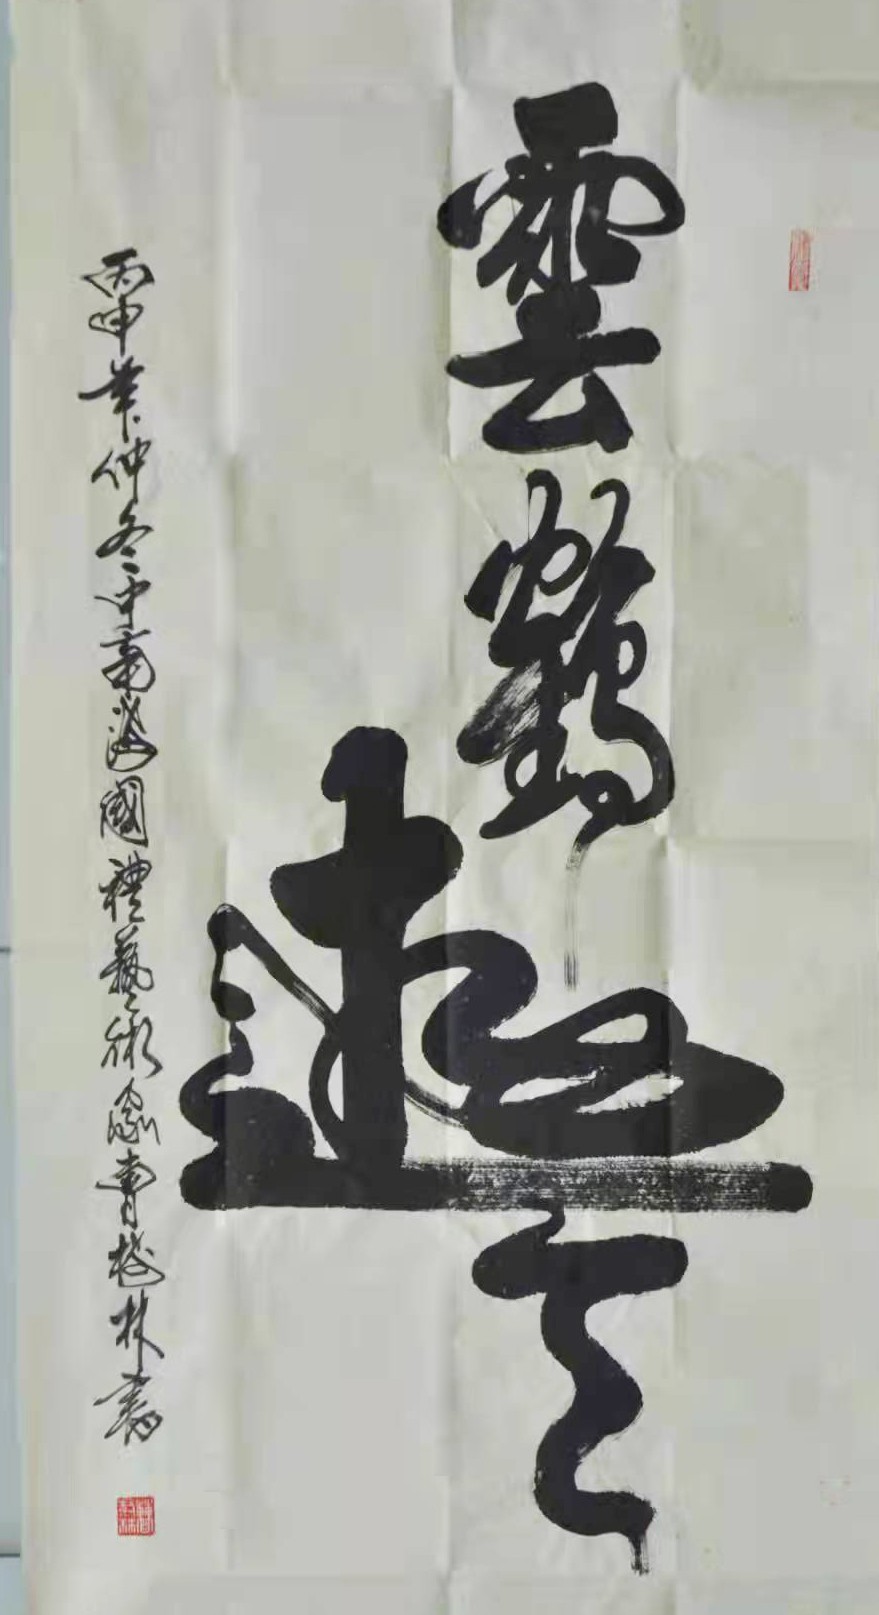 雲鶴遊天
丙申年仲冬中南海國禮藝術家林書